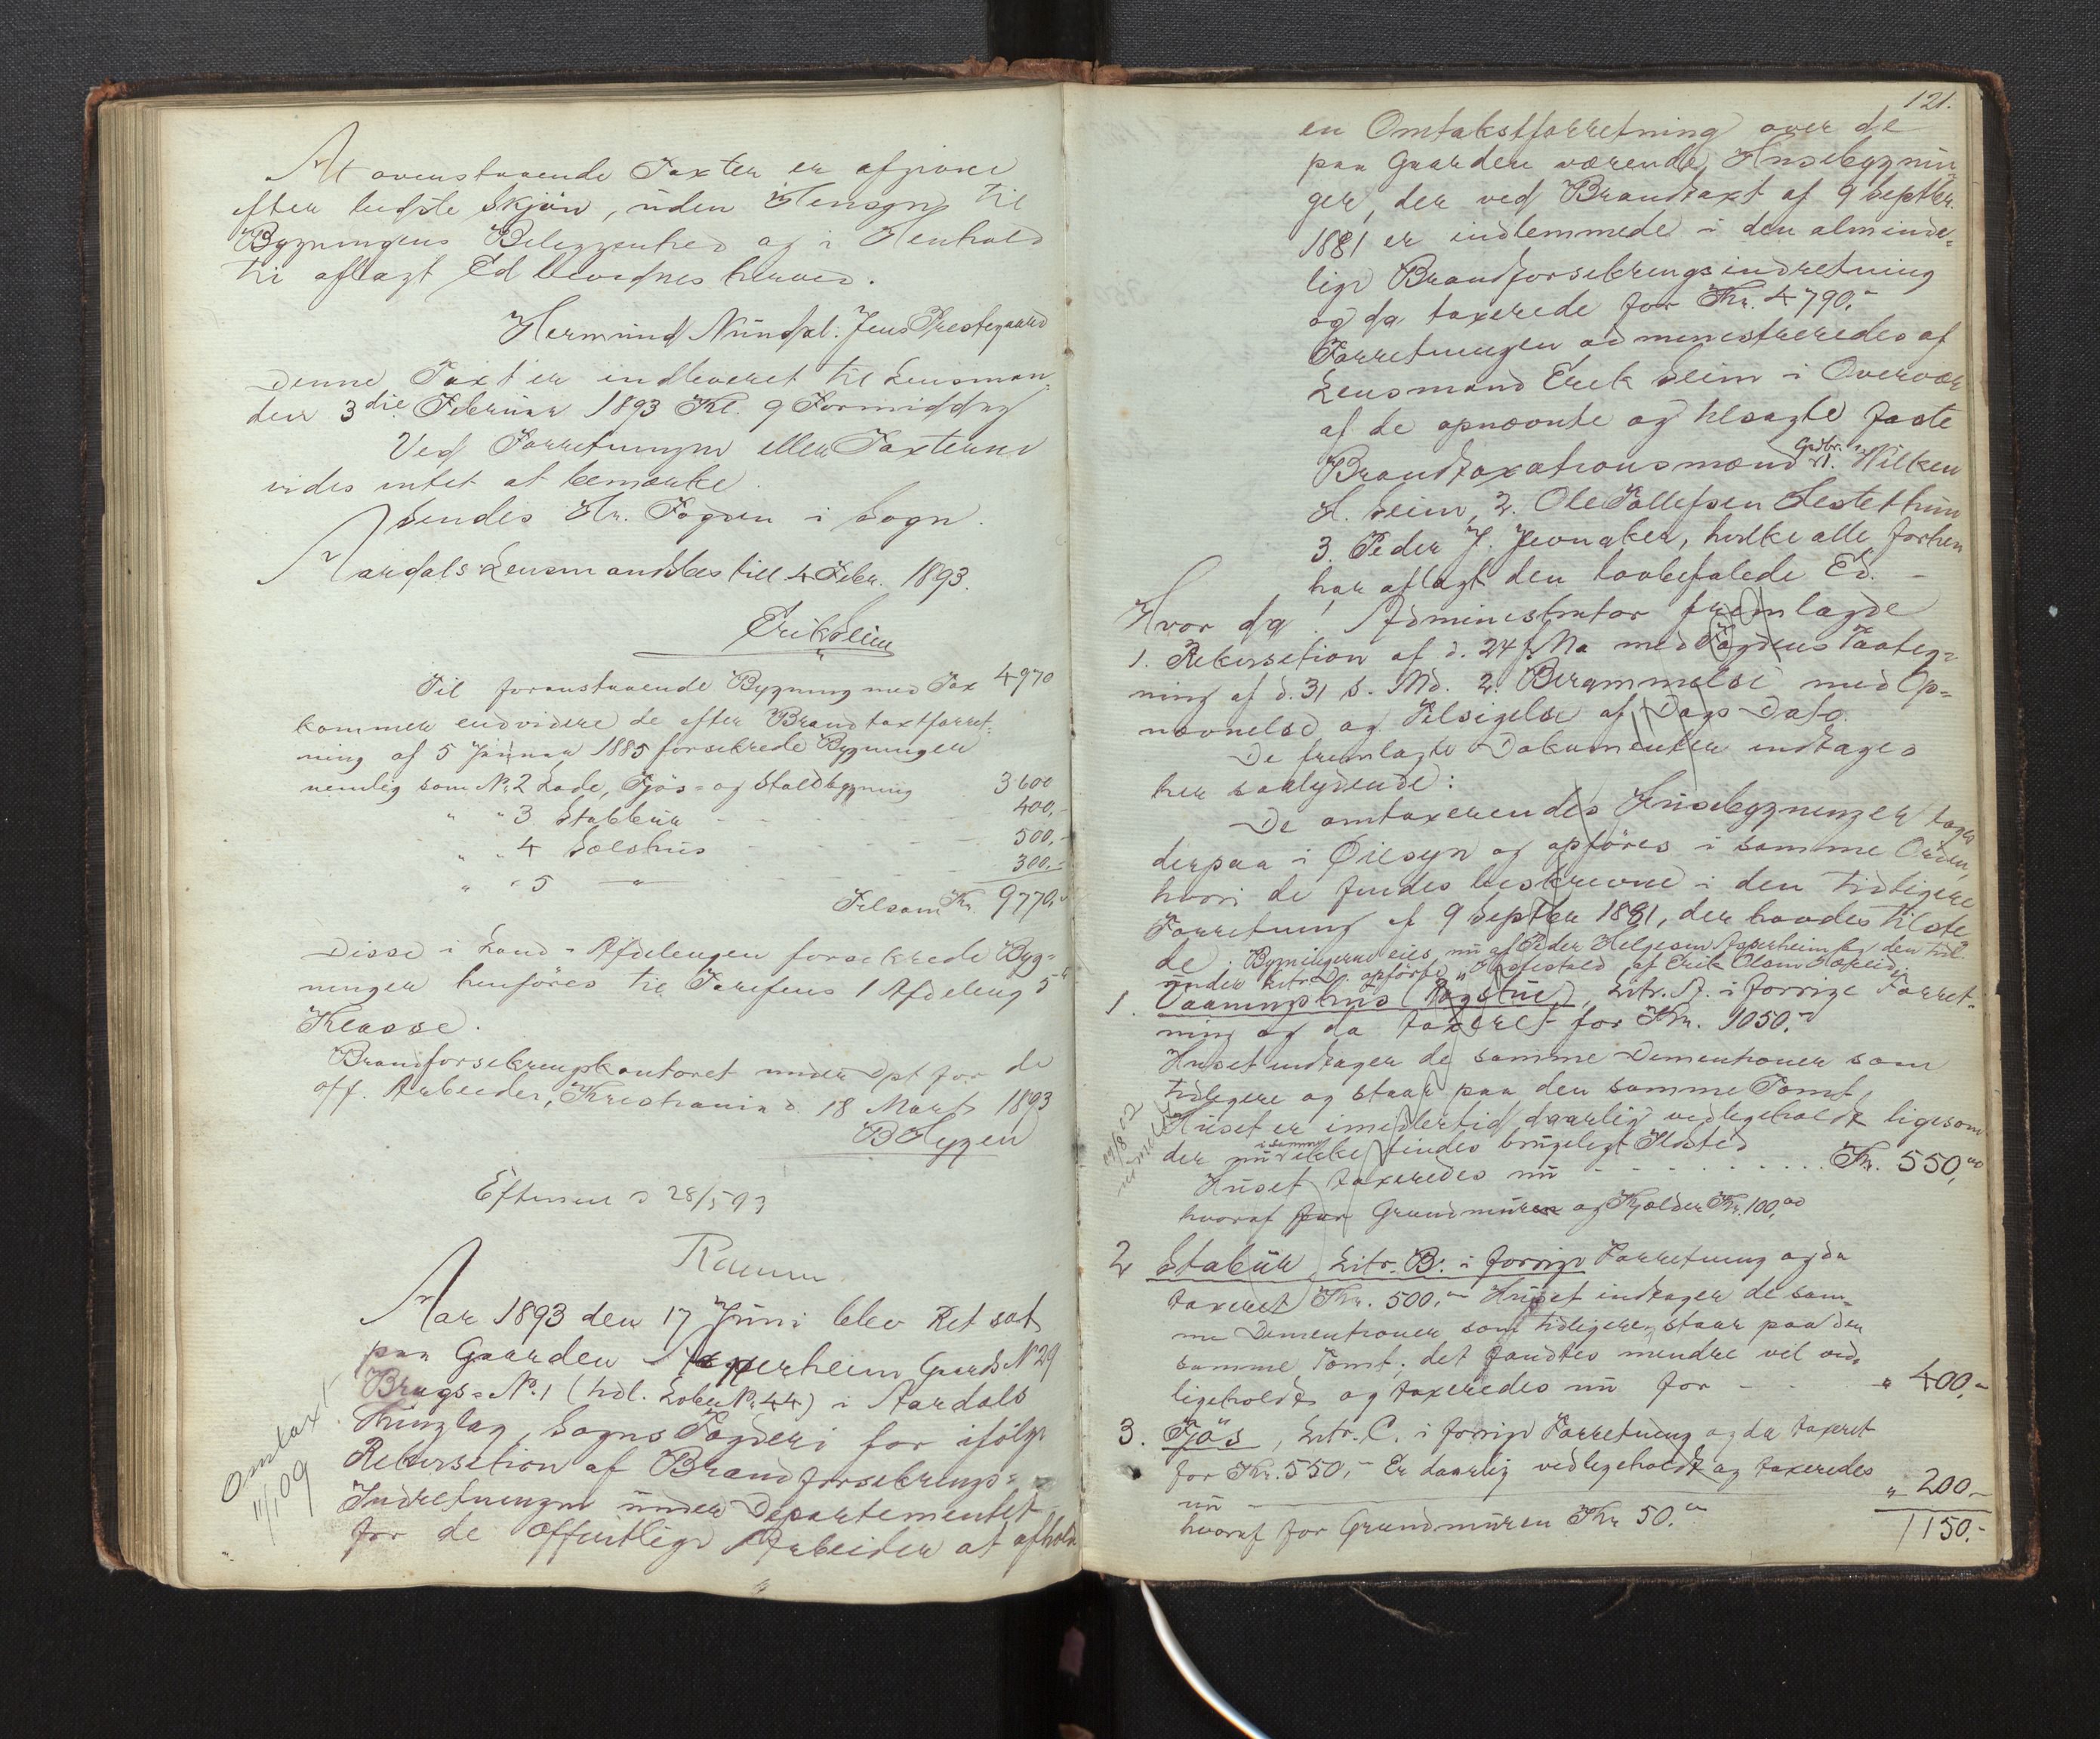 At ovenstaaende Taxter er afgivne
efter bedste Skjön, uden Hensyn til
Bygningens Beliggenhed og i Henhold
til aflagt Ed bevidnes herved.
Hermund Nundal. Jens Prestegaard
Denne Taxt er indleveret til Lensman-
den 3die Februar 1893 Kl. 9 Formiddag
Ved Forretningen eller Taxterne
vides intet at bemærke.
Sendes Hr. Fogden i Sogn.
Aardals Lensmandsbestill 4 Febr. 1893.
Erik Seim
Til foranstaaende Bygning med Tax 4970
kommer endvidere de efter Brandtaxtforret-
ning af 5 Januar 1885 forsekrede Bygninger
nemlig som No 2 Lade, Fjös- og Staldbygning 3600
" " 3 Stabbur - - - 400,-
" " 4 Sælshus - - - 500,-
" " 5 — " — 300.-
Tilsam Kr. 9770,-
Disse i Land-Afdelingen forsekrede Byg-
ninger henföres til Tarifens 1 Afdeling 5
Klasse.
Brandforsekringskontoret under Dpt for de
off. Arbeider, Kristiania d. 18 Marts 1893
B Hygen
Eftersee d 28/5 93
Aar 1893 den 17 Juni blev Ret sat
paa Gaarden Asperheim Gaards No 29
Brugs-No. 1 (tidl. Lobe No. 44) i Aardals
Thinglag, Sogns Fogderi for ifölge
Rekvisition af Brandforsekrings-
Indretningen under Departementet
for de offentlige Arbeider at afholde
Omtaxt
11/1 09
121.
en Omtakstforretning over de
paa Gaarden værende Husebygnin-
ger, der ved Brandtaxt af 9 Septbr.
1881 er indlemmede i den alminde-
lige Brandforsekringsindretning
og da taxerede for Kr. 4790.-
Forretningen administreredes af
Lensmand Erik Seim i Overvær
af de opnævnte og tilsagte faste
Brandtaxationsmænd Gaardbr. 1. Wilken
H. Seim, 2. Ole Tollefsen Hestethun
3. Peder J. Jevnaker, hvilke alle forhen
har aflagt den lovbefalede Ed. -
Hvor da! Administrator fremlagde
1. Rekvisetion af d. 24 f. Ma med Fogdens Paateg-
ning af d. 31 s. Md. 2. Berammelse med Op-
nævnelse og Tilsigelse af Dags Dato.
De fremlagte Dokumenter indtages
her saalydende:
De omtaxerendes Husebygninger toges
derpaa i Öiesyn og opföres i samme Orden,
hvori de findes beskrevne i den tidligere
Forretning af 9 Septber 1881, der havdes tilste-
de. Bygningerne eies nu af Peder Helgesen Asperheim og den tidl.
under Litr. D. opförte af Erik Olsen
1. Vaaningshus (Rögstue), Litr. A. i forrige Forret-
ning og da taxeret for Kr. 1050.-
Huset indtager de samme Dimentioner som
tidligere og staar paa den samme Tomt,
Huset er imidlertid daarlig vedligeholdt ligesom
der nu i samme ikke findes brugeligt Ildsted
Huset taxeredes nu - - - Kr. 550,00
hvoraf for Grundmuren og Kjelder Kr. 100,00
2 Stabur, Litr. B. i forrige Forretning og da
taxeret Kr. 500.- Huset indtager de sam-
me Dimentioner som tidligere, staar paa den
samme Tomt, det fandtes mindre vel ved-
ligeholdt og taxeredes nu for - - " 400,-
3. Fjös, Litr. C. i forrige Forretning og da taxeret
for Kr. 550,- Er daarlig vedligeholdt og taxeredes
nu — " 200.-
hvoraf for Grundmuren Kr 50.-
1150.-